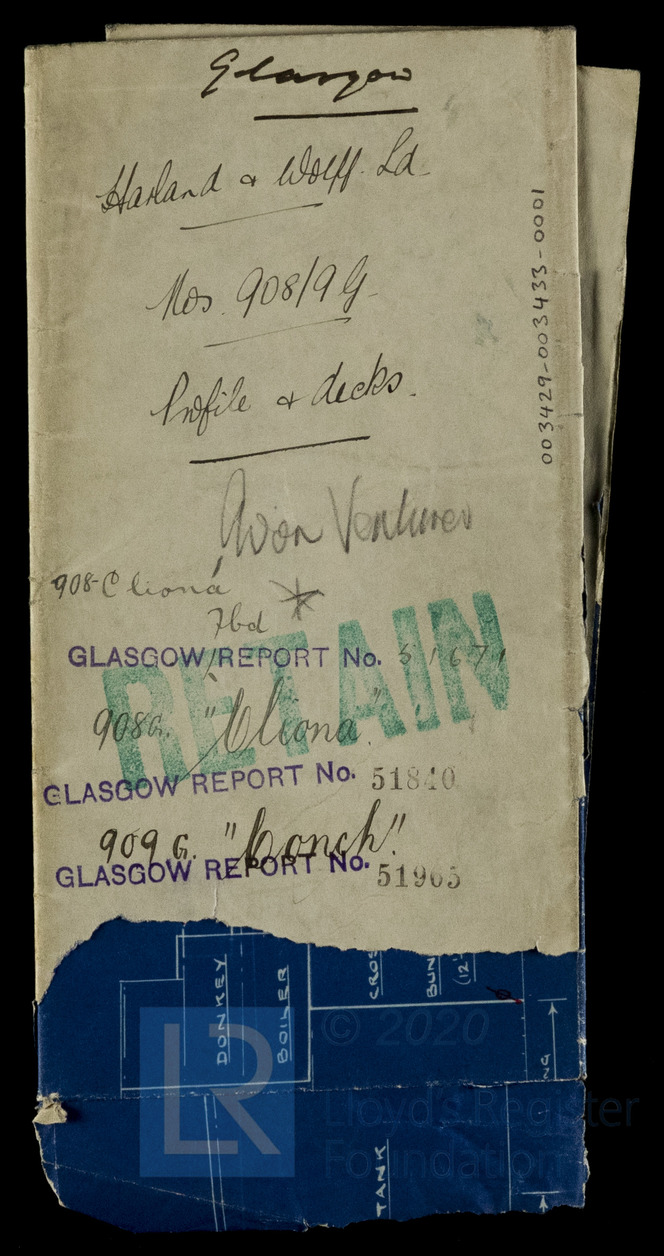 Glasgow
Harland & Wolff Ld
Nos. 908/9 G
Profile & decks.
003429-003433-0001
908-Cliona
7bd
RETAIN
GLASGOW REPORT No. 51671
908G. "Cliona"
GLASGOW REPORT No. 51840
909 G. "Conch"
GLASGOW REPORT No. 51965
DONKEY
BOILER
CROS
BUN
(12'
NG
TANK
LR
© 2020
Lloyd's Register
Foundation